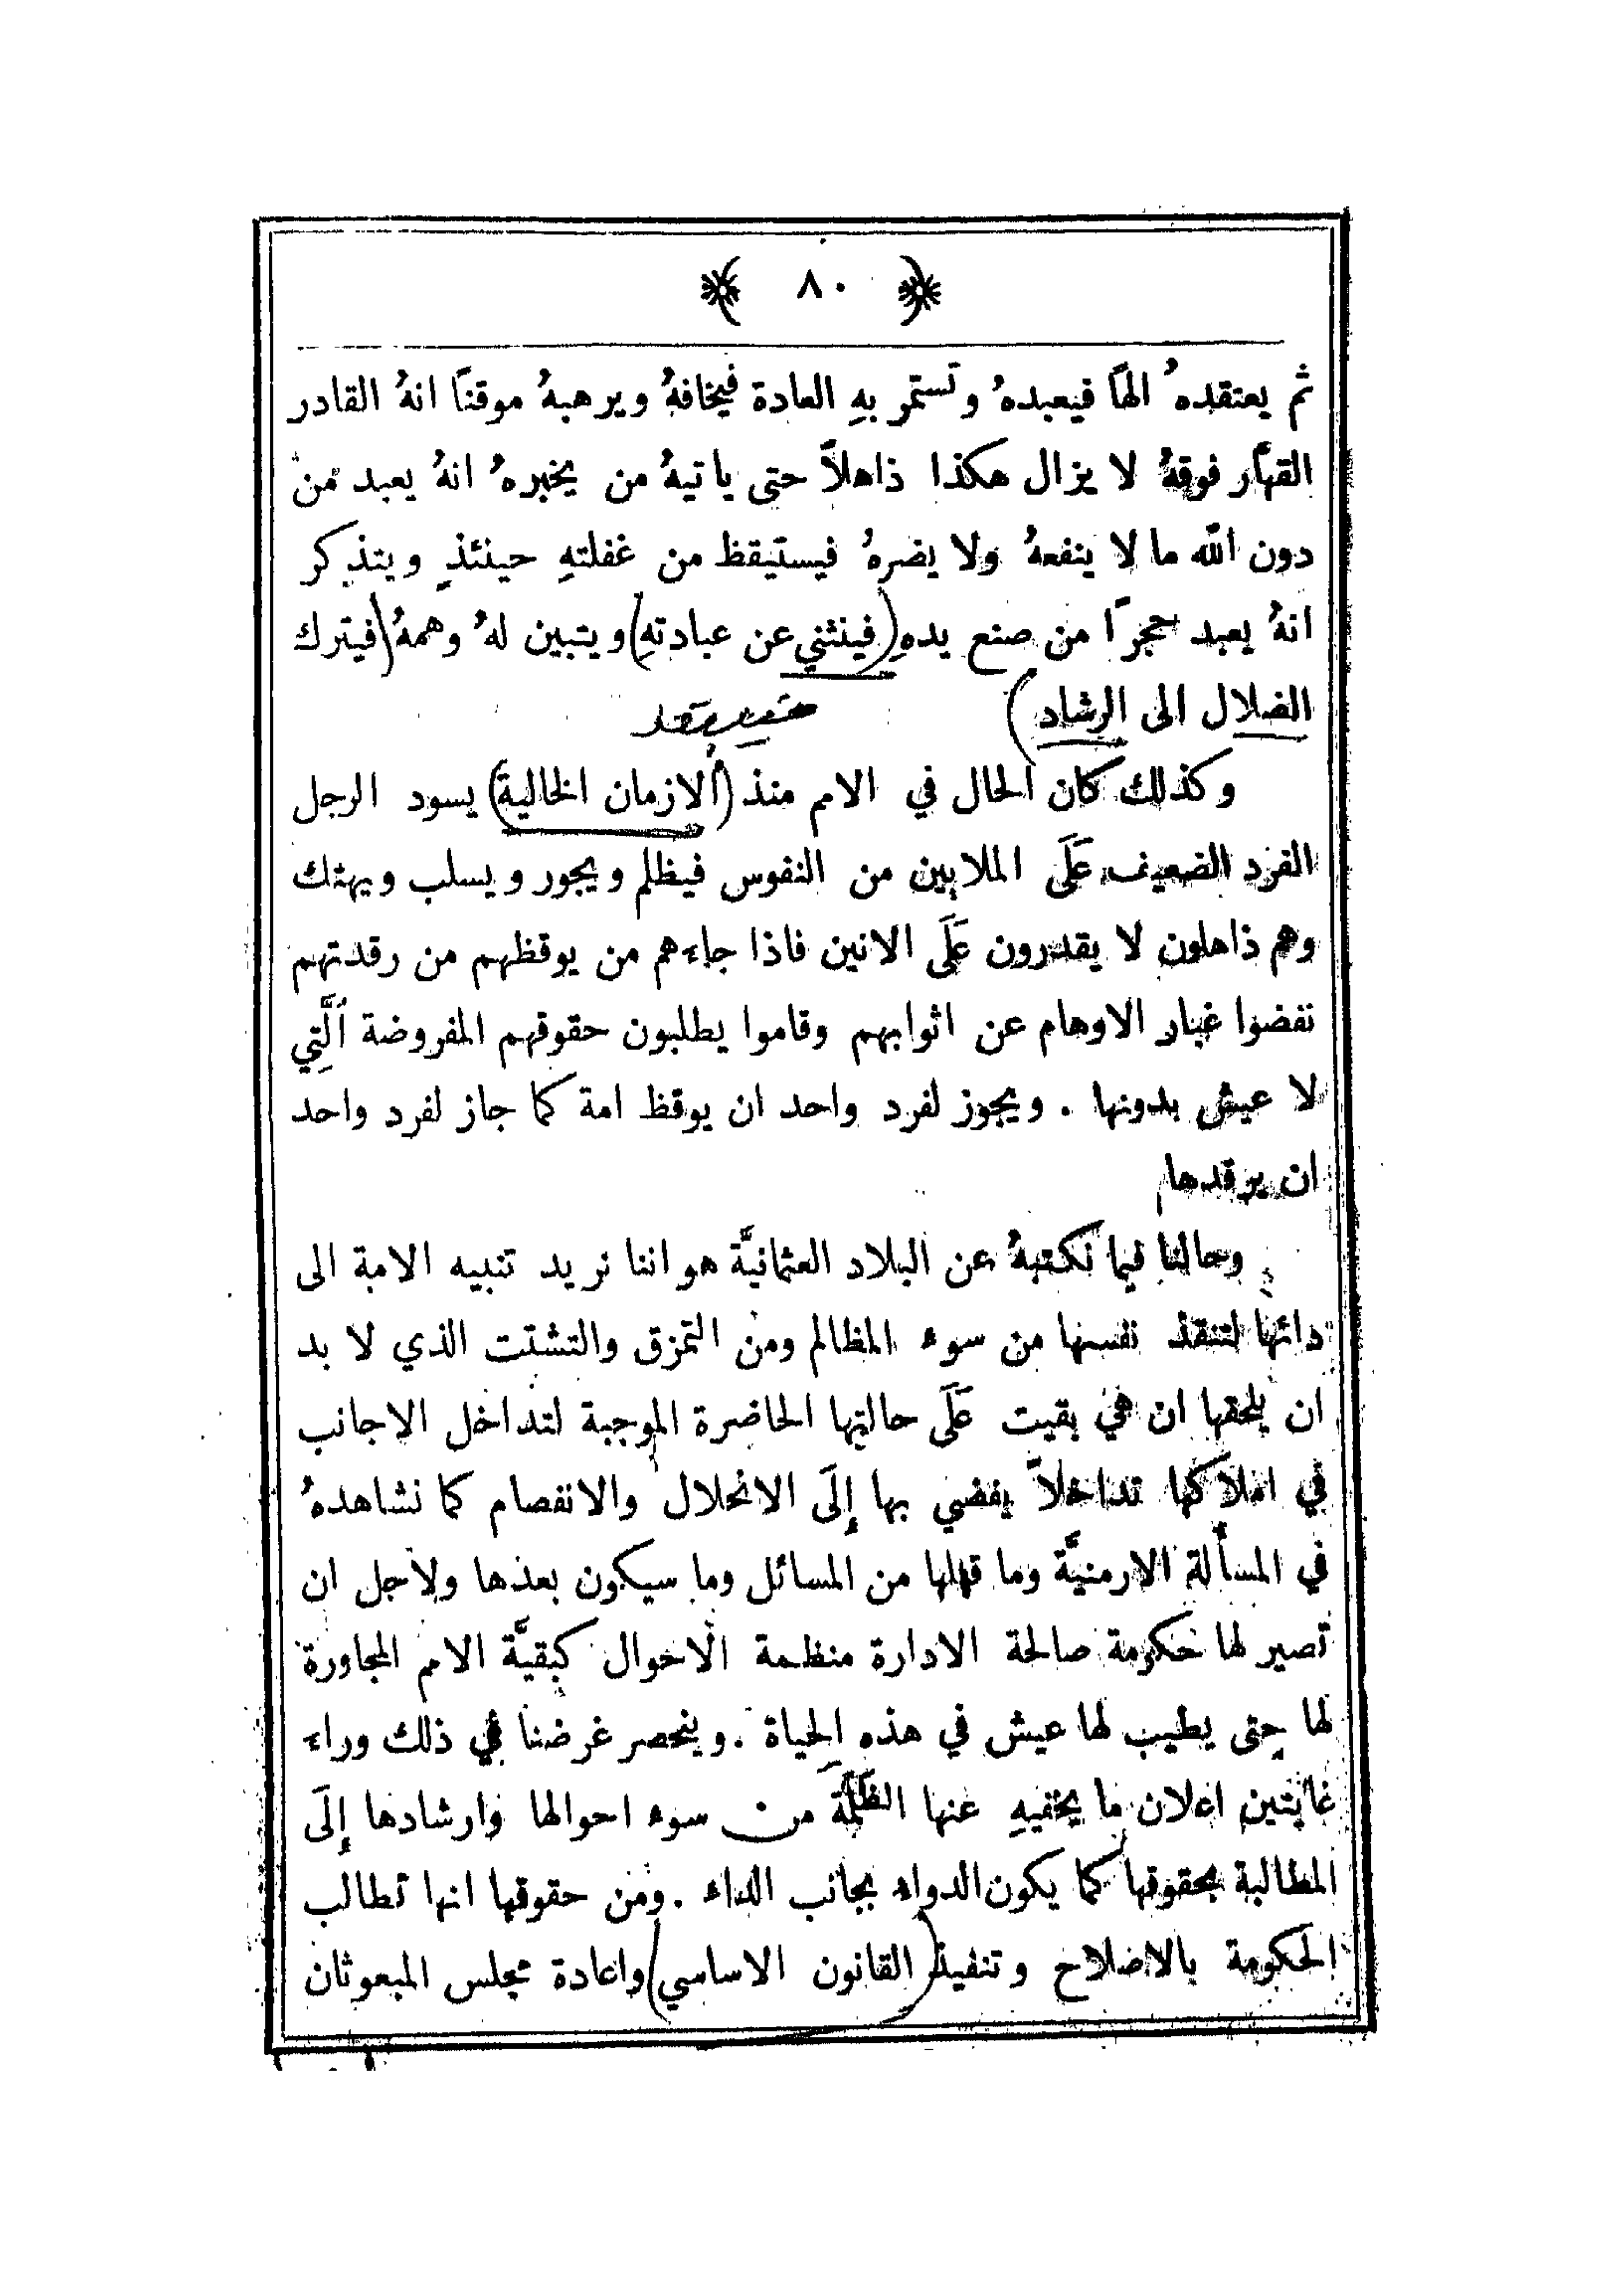 ٨٠
ثم يعتقدهُ الهًا فيعبدهُ وتستمر بهِ العادة فيخافهُ ويرهبهُ موقنًا انهُ القادر
القهَّار فوقهُ لا يزال هكذا ذاهلاً حتى ياتيهُ من يخبرهُ انهُ يعبد من
دون الله ما لا ينفعهُ ولا يضرهُ فيستيقظ من غفلتهِ حينئذٍ ويتذكر
انهُ يعبد حجرًا من صنع يدهِ (فينثني عن عبادتهِ) ويتبين لهُ وهمهُ (فيترك
الضلال الى الرشاد)
وكذلك كان الحال في الامم منذ (الازمان الخالية) يسود الرجل
الفرد الضعيف عَلَى الملايين من النفوس فيظلم ويجور ويسلب ويهتك
وهم ذاهلون لا يقدرون عَلَى الانين فاذا جاءهم من يوقظهم من رقدتهم
نفضوا غبار الاوهام عن اثوابهم وقاموا يطلبون حقوقهم المفروضة ٱلَّتِي
لا عيش بدونها . ويجوز لفرد واحد ان يوقظ امة كما جاز لفرد واحد
ان يرقدها
وحالنا فيما نكتبهُ عن البلاد العثمانيَّة هو اننا نريد تنبيه الامة الى
دائها لتنقذ نفسها من سوء المظالم ومن التمزق والتشتت الذي لا بد
ان يلحقها ان هي بقيت عَلَى حالتها الحاضرة الموجبة لتداخل الاجانب
في املاكها تداخلاً يفضي بها إِلَى الانحلال والانفصام كما نشاهدهُ
في المسألة الارمنيَّة وما قبلها من المسائل وما سيكون بعدها ولاجل ان
تصير لها حكومة صالحة الادارة منظمة الاحوال كبقيَّة الامم المجاورة
لها حتى يطيب لها عيش في هذه الحياة . وينحصر غرضنا في ذلك وراء
غايتين اعلان ما يخفيهِ عنها الظَّلَمَة من سوء احوالها وارشادها إِلَى
المطالبة بحقوقها كما يكون الدواء بجانب الداء . ومن حقوقها انها تطالب
الحكومة بالاصلاح وتنفيذ (القانون الاساسي) واعادة مجلس المبعوثان